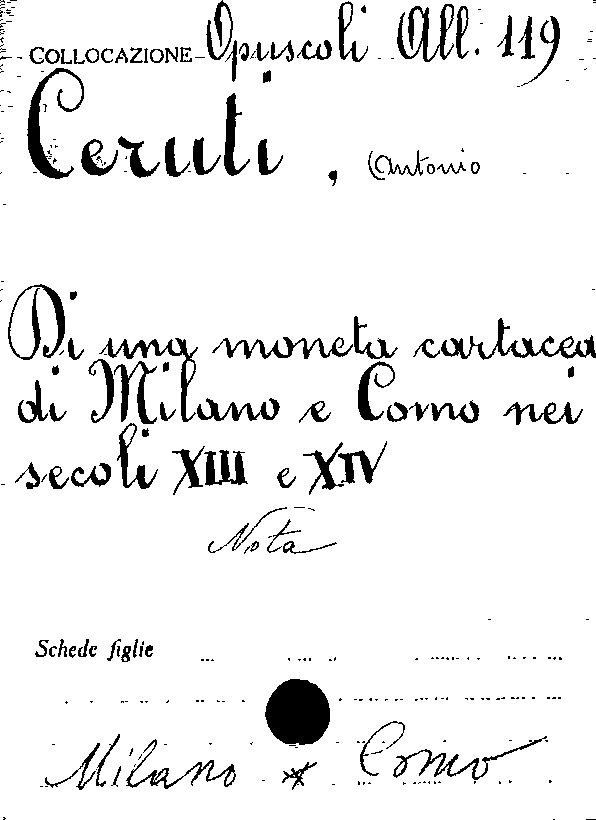 COLLOCAZIONE Opuscoli All. 119
Ceruti, Antonio
Di una moneta cartacea
di Milano e Como nei
secoli XIII e XIV
Nota
Schede figlie
Milano * Como